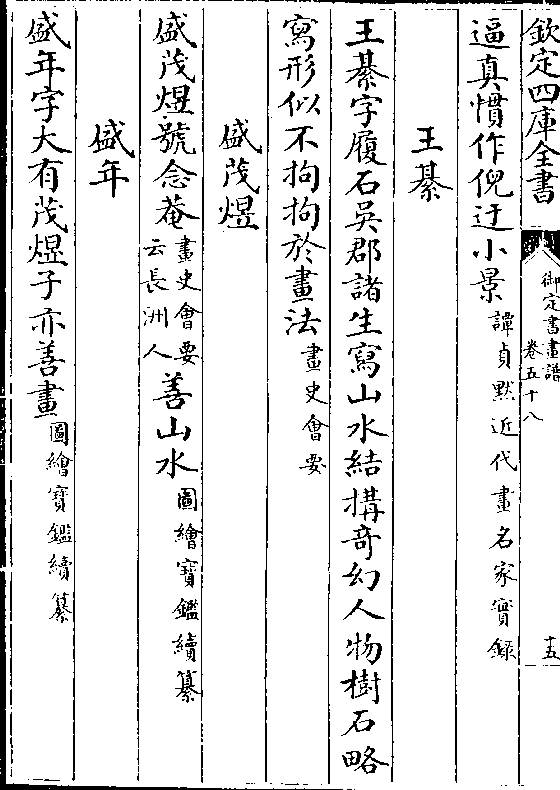 欽定四庫全書
御定書畫譜
卷五十八
十五
逼真慣作倪迂小景譚貞默近代畫名家實錄
王綦
王綦字履石吳郡諸生寫山水結搆奇幻人物樹石略
寫形似不拘拘於畫法畫史會要
盛茂煜
盛茂煜號念菴畫史會要云長洲人善山水圖繪寶鑑續纂
盛年
盛年字大有茂煜子亦善畫圖繪寶鑑續纂